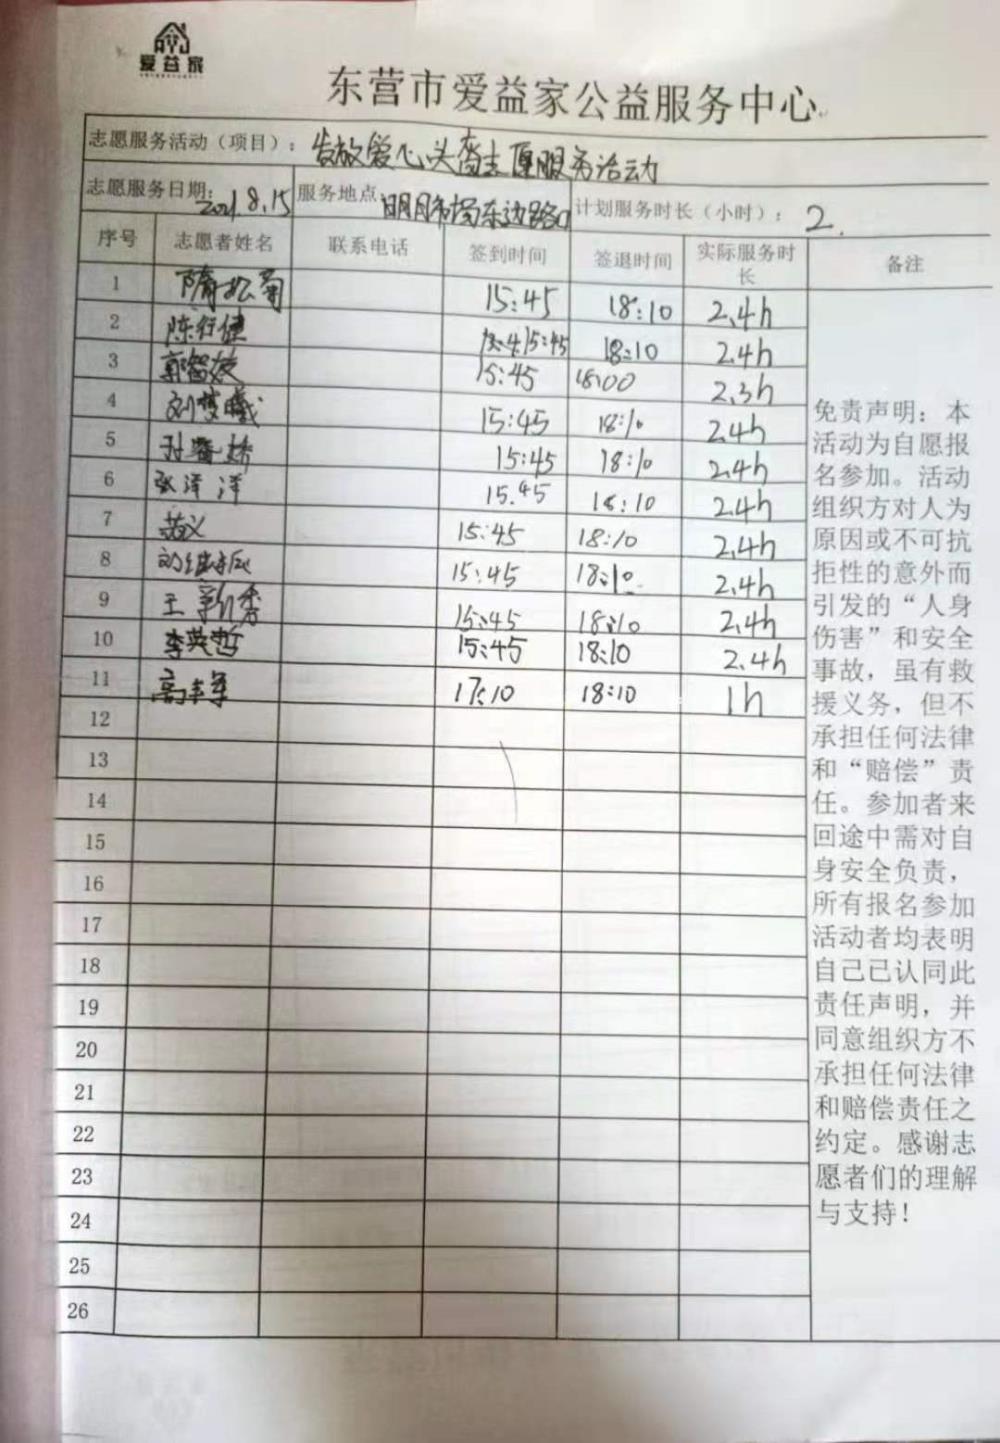 爱益家
东营市爱益家公益服务中心
志愿服务活动（项目）：发放爱心头盔志愿服务活动
志愿服务日期：2021.8.15 服务地点 明月市场东边路口 计划服务时长（小时）：2.
序号 志愿者姓名 联系电话 签到时间 签退时间 实际服务时长 备注
1 隋松菊 15:45 18:10 2.4h
2 陈行健 15:45 18:10 2.4h
3 郭智 15:45 18:00 2.3h
4 刘梦曦 15:45 18:10 2.4h
5 15:45 18:10 2.4h
6 张洋洋 15.45 18:10 2.4h
7 15:45 18:10 2.4h
8 刘继 15:45 18:10 2.4h
9 王新秀 15:45 18:10 2.4h
10 李英哲 15:45 18:10 2.4h
11 高丰军 17:10 18:10 1h
12
13
14
15
16
17
18
19
20
21
22
23
24
25
26
免责声明：本
活动为自愿报
名参加。活动
组织方对人为
原因或不可抗
拒性的意外而
引发的“人身
伤害”和安全
事故，虽有救
援义务，但不
承担任何法律
和“赔偿”责
任。参加者来
回途中需对自
身安全负责，
所有报名参加
活动者均表明
自己已认同此
责任声明，并
同意组织方不
承担任何法律
和赔偿责任之
约定。感谢志
愿者们的理解
与支持！